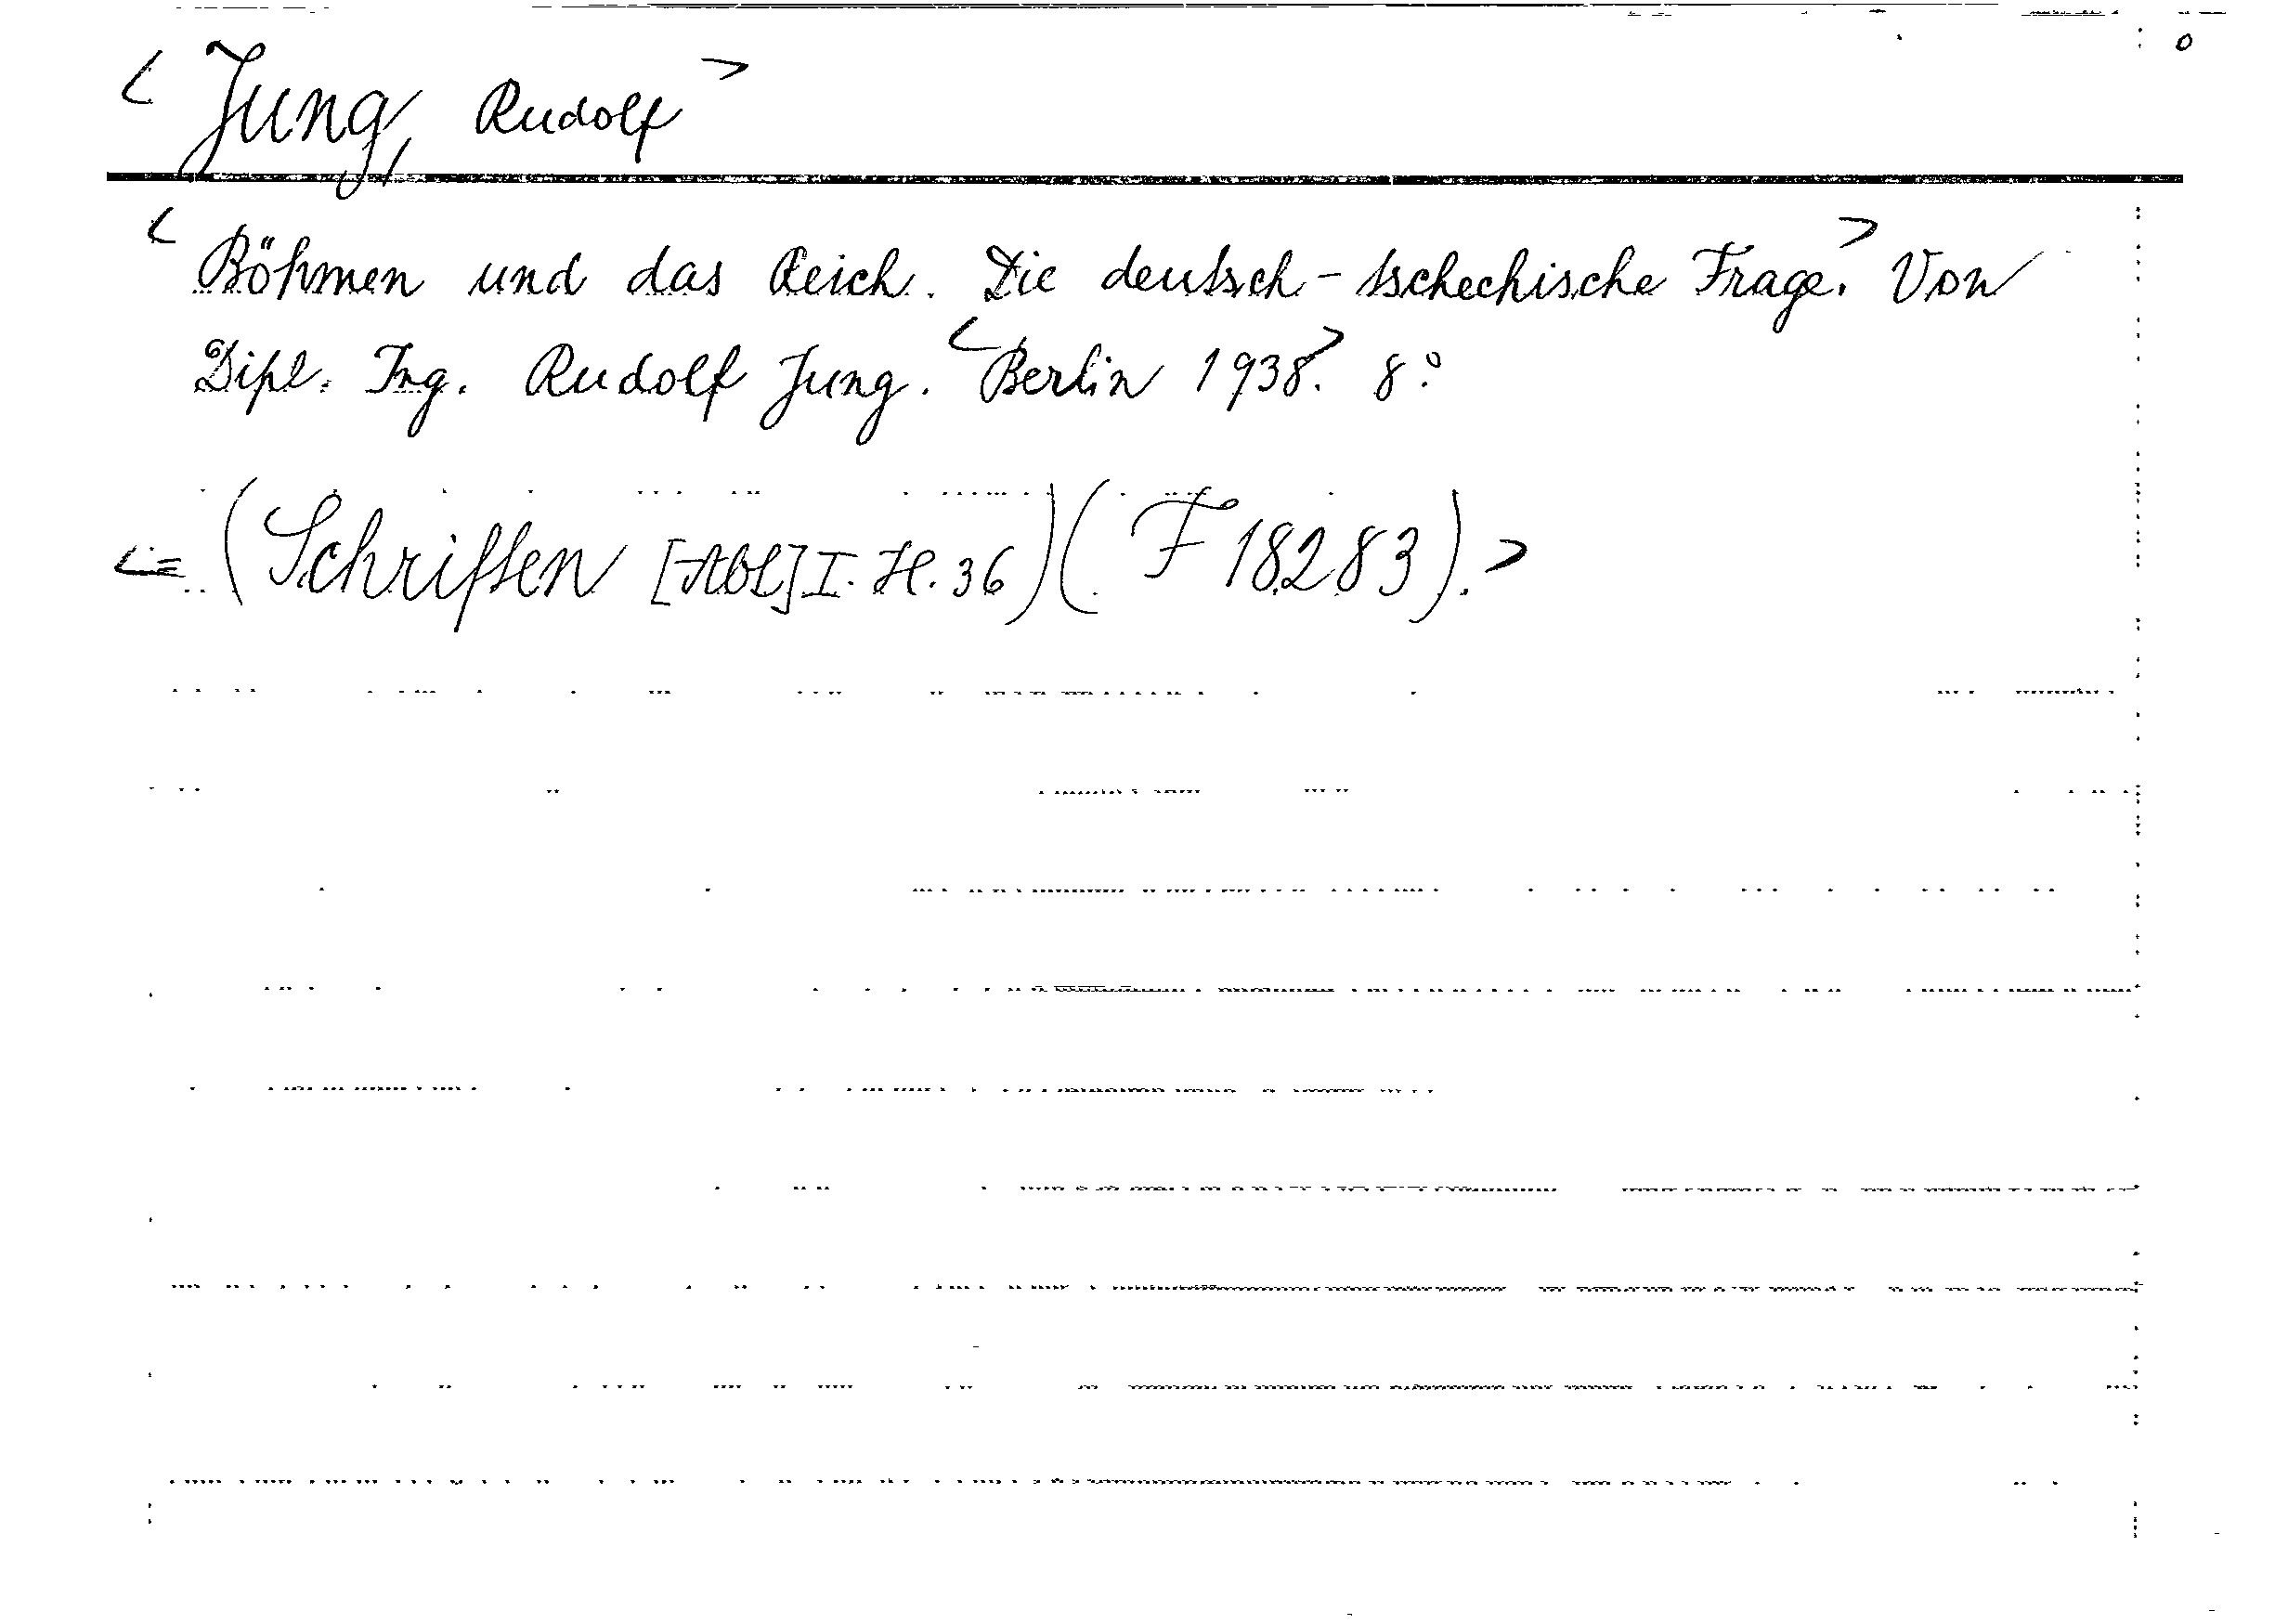 < Jung, Rudolf >
< Böhmen und das Reich. Die deutsch-tschechische Frage. > Von
Dipl. Ing. Rudolf Jung. < Berlin 1938. > 8°
<= (Schriften [Abt] I. H. 36) (F 18283). >